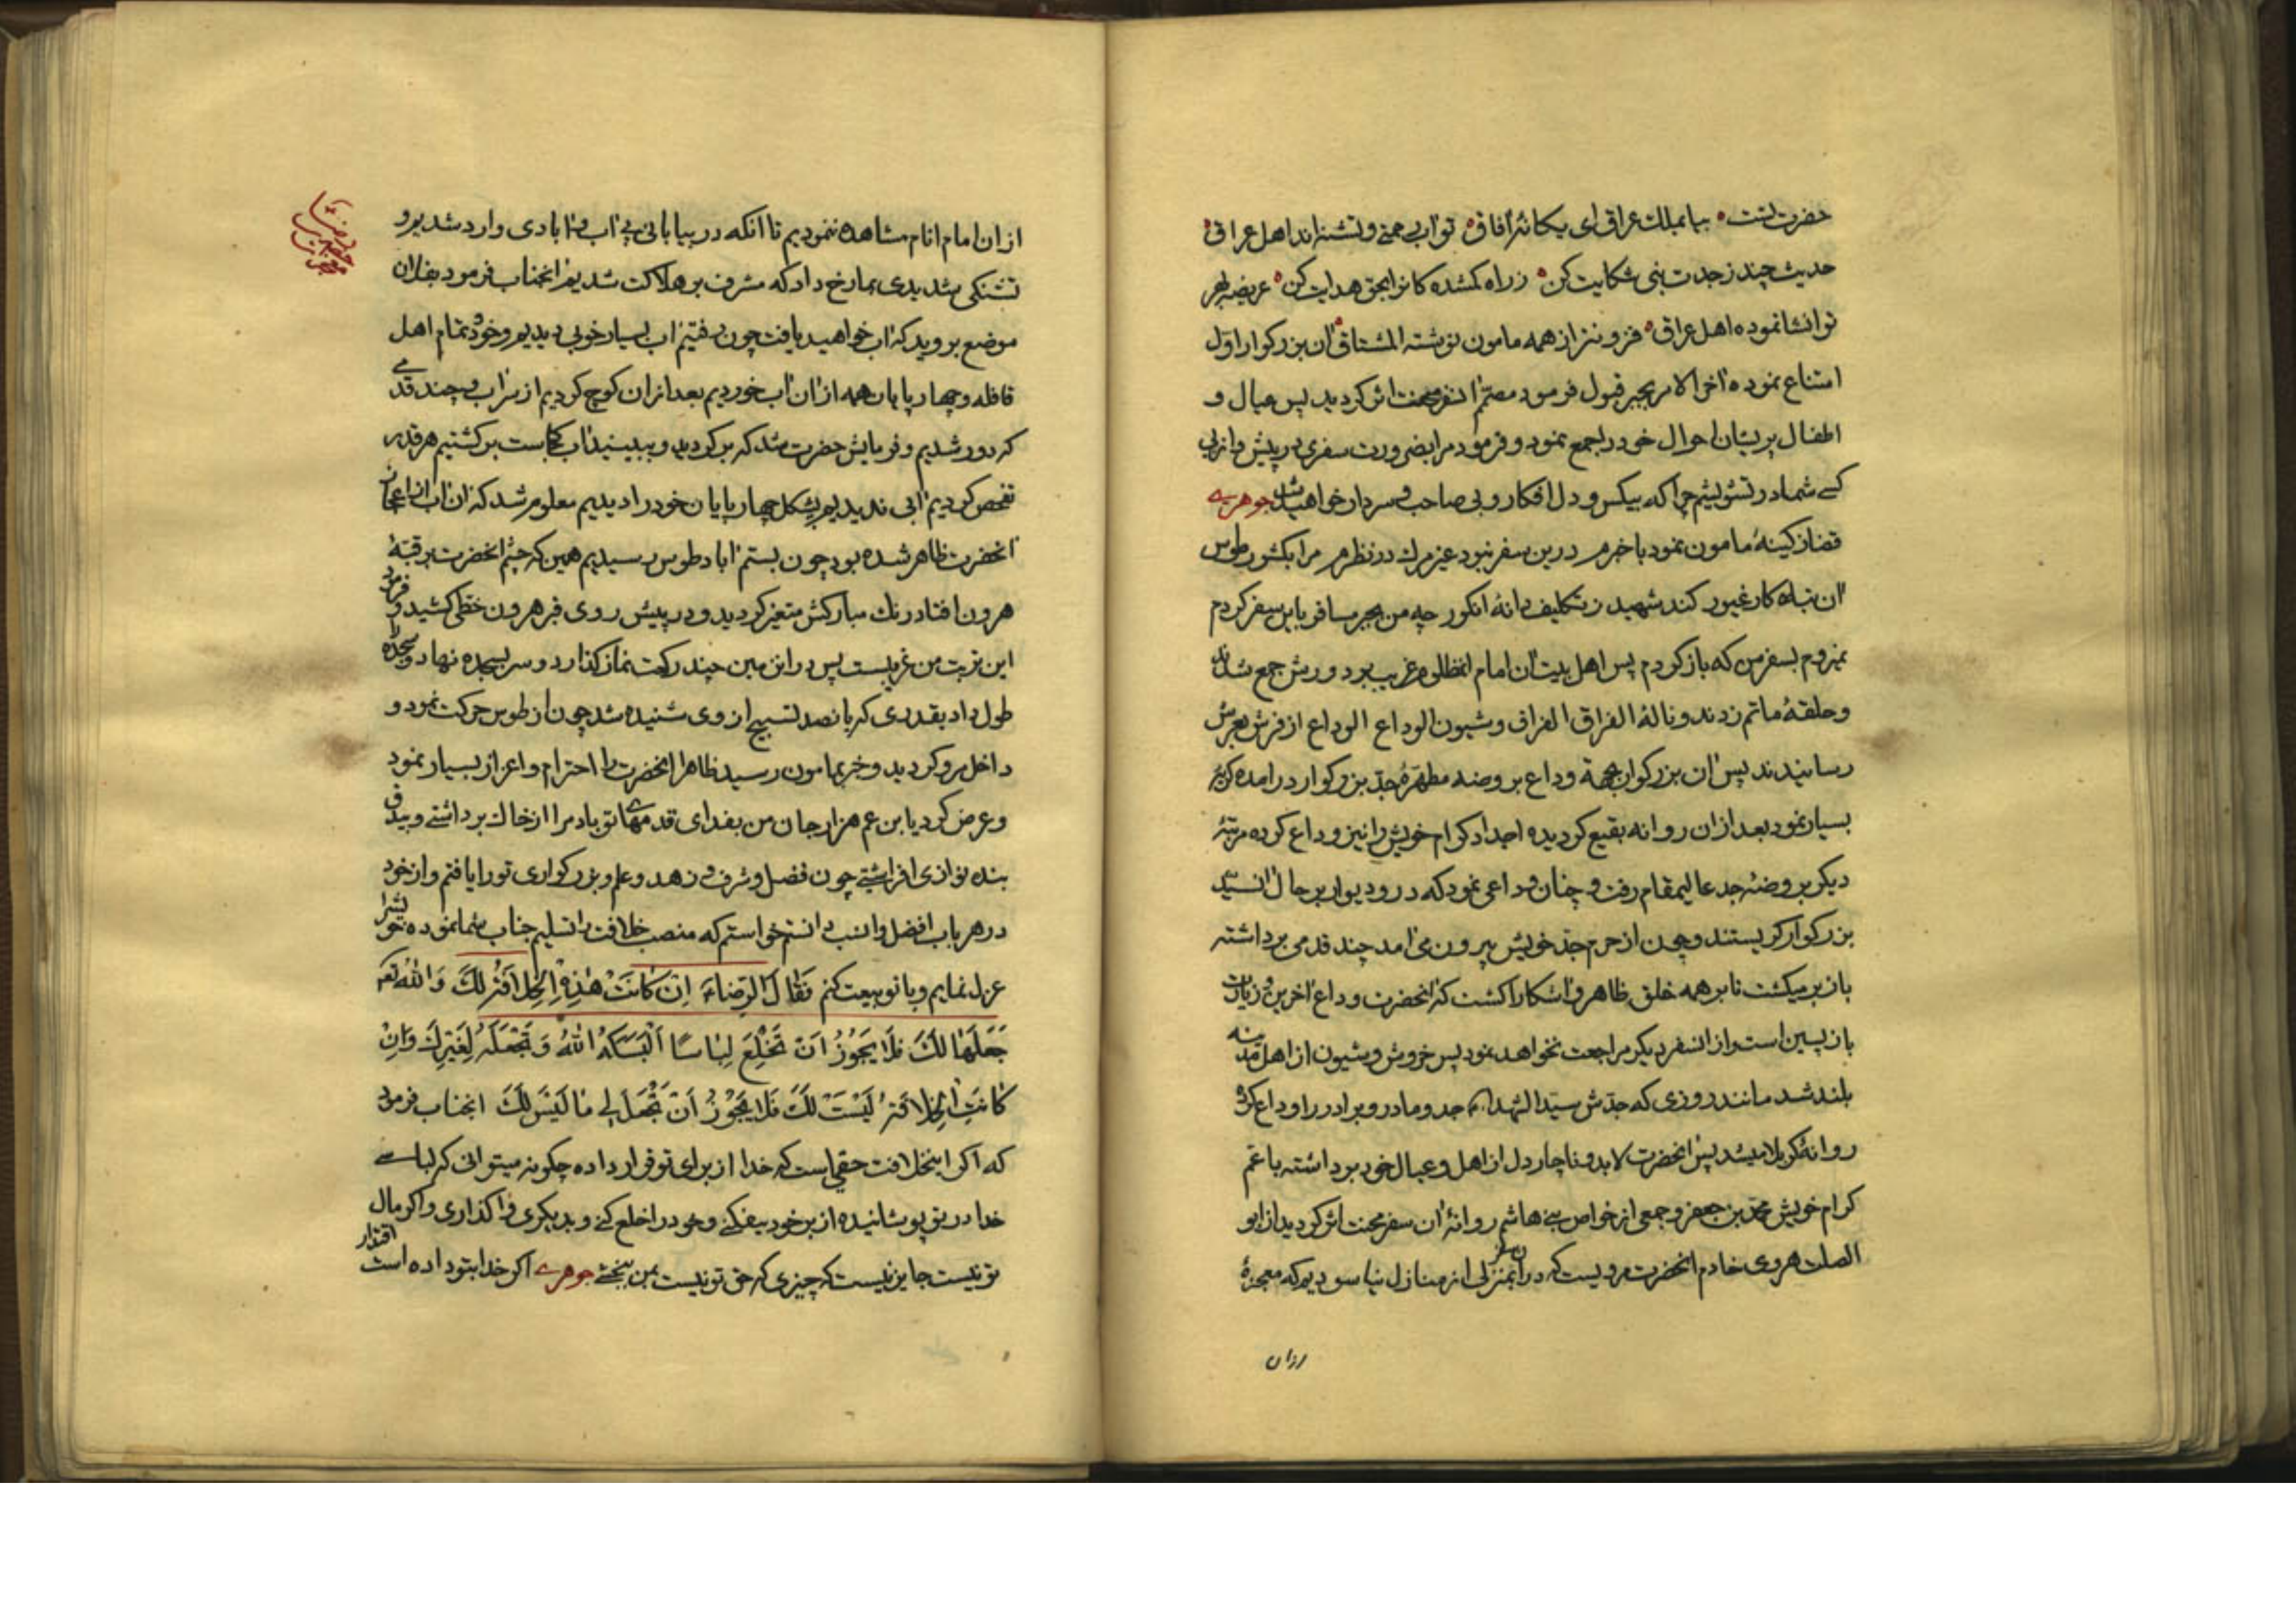 حضرت تست ٥ بیا بملک عراق ای یکانهٔ افاق ٥ تو اب رحمتی و تشنه اند اهل عراق ٥
حدیث چند ز جدت بنی شکایت کن ٥ ز راه کمشده کانرا بحق هدایت کن ٥ عریضه بهر
تو انشا نموده اهل عراق ٥ فزون تر از همه مامون نوشته المشتاق ان بزرکوار اول
امتناع نموده اخر الامر بجبر قبول فرمود مصمم انسفر محنت اثر کردید پس عیال و
اطفال پریشان احوال خود را جمع نمود و فرمود مرا بضرورت سفری در پیش و از بی
کسی شما در تشویشم چرا که بیکس و دل افکار و بی صاحب و سردار خواهید شد جوهری
قضا ز کینهٔ مامون نمود با خبرم درین سفر نبود غیر مرک در نظرم مرا بکشور طوس
ان تباه کار غیور کند شهید ز تکلیف دانهٔ انکور چه من بجبر مسافر باین سفر کردم
نمیروم بسفر من که باز کردم پس اهل بیت ان امام المظلوم غریب بر دورش جمع شدند
و حلقهٔ ماتم زدند و نالهٔ الفراق الفراق و شیون الوداع الوداع از فرش بعرش
رسانیدند پس ان بزرکوار بجهة وداع بروضه مطهرهٔ جد بزرکوار در امده کریهٔ
بسیار نمود بعد ازان روانه بقیع کردیده اجداد کرام خویش را نیز وداع کرده مرتبهٔ
دیکر بروضهٔ جد عالیمقام رفت و چنان وداعی نمود که در و دیوار بر حال ان سید
بزرکوار کریستند و چون از حرم جد خویش بیرون می امد چند قدمی برداشته
باز بر میکشت تا بر همه خلق ظاهر و اشکارا کشت که انحضرت وداع اخرین و زیارت
باز پسین است و از انسفر دیکر مراجعت نخواهد نمود پس خروش و شیون از اهل مدینه
بلند شد مانند روزی که جدش سید الشهداء جد و مادر و برادر را وداع کرده
روانهٔ کربلا میشد پس انحضرت لابد و ناچار دل از اهل و عیال خود برداشته با عم
کرام خویش محمد بن جعفر و جمعی از خواص بنی هاشم روانهٔ ان سفر محنت اثر کردید از ابو
الصلت هروی خادم انحضرت مرویست که در ان سفر بمنزلی از منازل نیاسودیم که معجزهٔ
ازان
ازان امام انام مشاهده ننمودیم تا انکه در بیابانی بی اب و ابادی وارد شدیم و
تشنکی شدیدی بما رخ داد که مشرف بر هلاکت شدیم انجناب فرمود بفلان
موضع بروید که اب خواهید یافت چون رفتیم اب بسیار خوبی دیدیم و خود تمام اهل
قافله و چهار پایان همه ازان اب خوردیم بعد ازان کوچ کردیم از سراب و چند قدمی
که دور شدیم و فرمایش حضرت شد که بر کردید و ببینید اب کجاست بر کشتیم هر قدر
تفحص کردیم ابی ندیدیم پشکل چهار پایان خود را دیدیم معلوم شد که ان اب از اعجاز
انحضرت ظاهر شده بود چون بستم اباد طوس رسیدیم همین که چشم انحضرت بر قبهٔ
هرون افتاد رنک مبارکش متغیر کردید و در پیش روی قبر هرون خطی کشید و فرمود
این تربت من غریبست پس در ان زمین چند رکعت نماز کذارد و سر بسجده نهاد و سجده را
طول داد بقدری که پانصد تسبیح از وی شنیده شد چون از طوس حرکت نمود و
داخل مرو کردید و خبر بمامون رسید ظاهرا انحضرت را احترام و اعزاز بسیار نمود
و عرض کرد یا بن عم هزار جان من بفدای قدمهای تو باد مرا از خاک برداشتی و بیدق
بنده نوازی افراشتی چون فضل و شرف و زهد و علم و بزرکواری تو را یافتم و از خود
در هر باب افضل و انسب دانستم خواستم که منصب خلافت را تسلیم جناب شما نموده خویش را
عزل نمایم و با تو بیعت کنم فَقالَ الرّضاء اِنْ کانَتْ هٰذِهِ الْخِلافَةُ لَکَ وَ اللّهُ
جَعَلَها لَکَ فَلا یَجُوزُ اَنْ تَخْلَعَ لِباسًا اَلْبَسَکَهُ اللّهُ وَ تَجْعَلَهُ لِغَیْرِکَ وَ اِنْ
کانَتِ الْخِلافَةُ لَیْسَتْ لَکَ فَلا یَجُوزُ اَنْ تَجْعَلَ لِی ما لَیْسَ لَکَ انجناب فرمود
که اکر اینخلافت حقی است که خدا از برای تو قرار داده چکونه میتوانی که لباسی
خدا در تو پوشانیده از بر خود بیفکنی و خود را خلع کنی و بدیکری واکذاری و اکر مال
تو نیست جایز نیست که چیزی که حق تو نیست بمن بخشی جوهری اکر خدا بتو داده است اقتدار